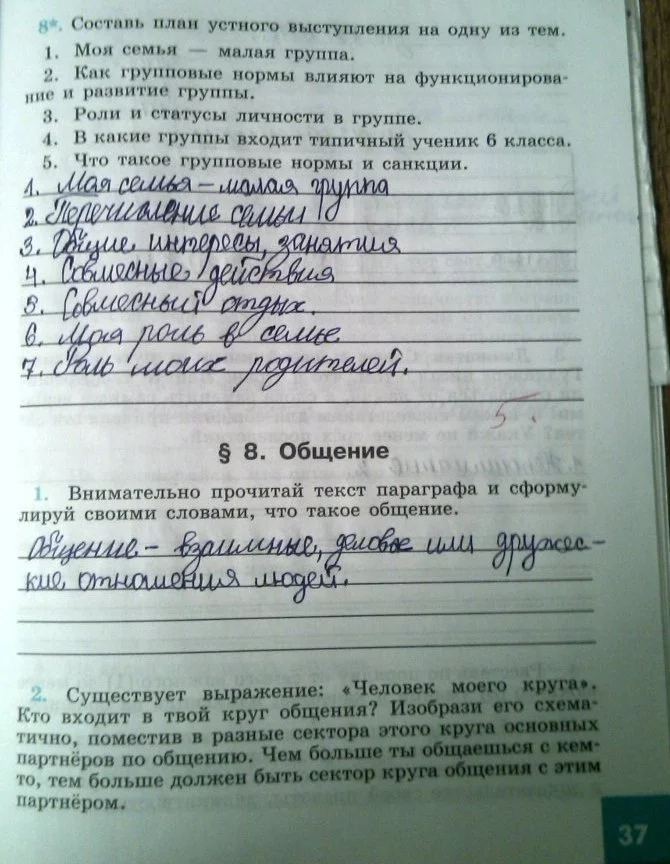 8*. Составь план устного выступления на одну из тем.
1. Моя семья — малая группа.
2. Как групповые нормы влияют на функционирова-
ние и развитие группы.
3. Роли и статусы личности в группе.
4. В какие группы входит типичный ученик 6 класса.
5. Что такое групповые нормы и санкции.
1. Моя семья – малая группа
2. Перечисление семьи
3. Общие интересы, занятия
4. Совмесные действия
5. Совмесный отдых.
6. Моя роль в семье
7. Роль моих родителей.
5.
§ 8. Общение
1. Внимательно прочитай текст параграфа и сформу-
лируй своими словами, что такое общение.
Общение – взаимные, деловые или дружес-
кие отношения людей.
2. Существует выражение: «Человек моего круга».
Кто входит в твой круг общения? Изобрази его схема-
тично, поместив в разные сектора этого круга основных
партнёров по общению. Чем больше ты общаешься с кем-
то, тем больше должен быть сектор круга общения с этим
партнёром.
37